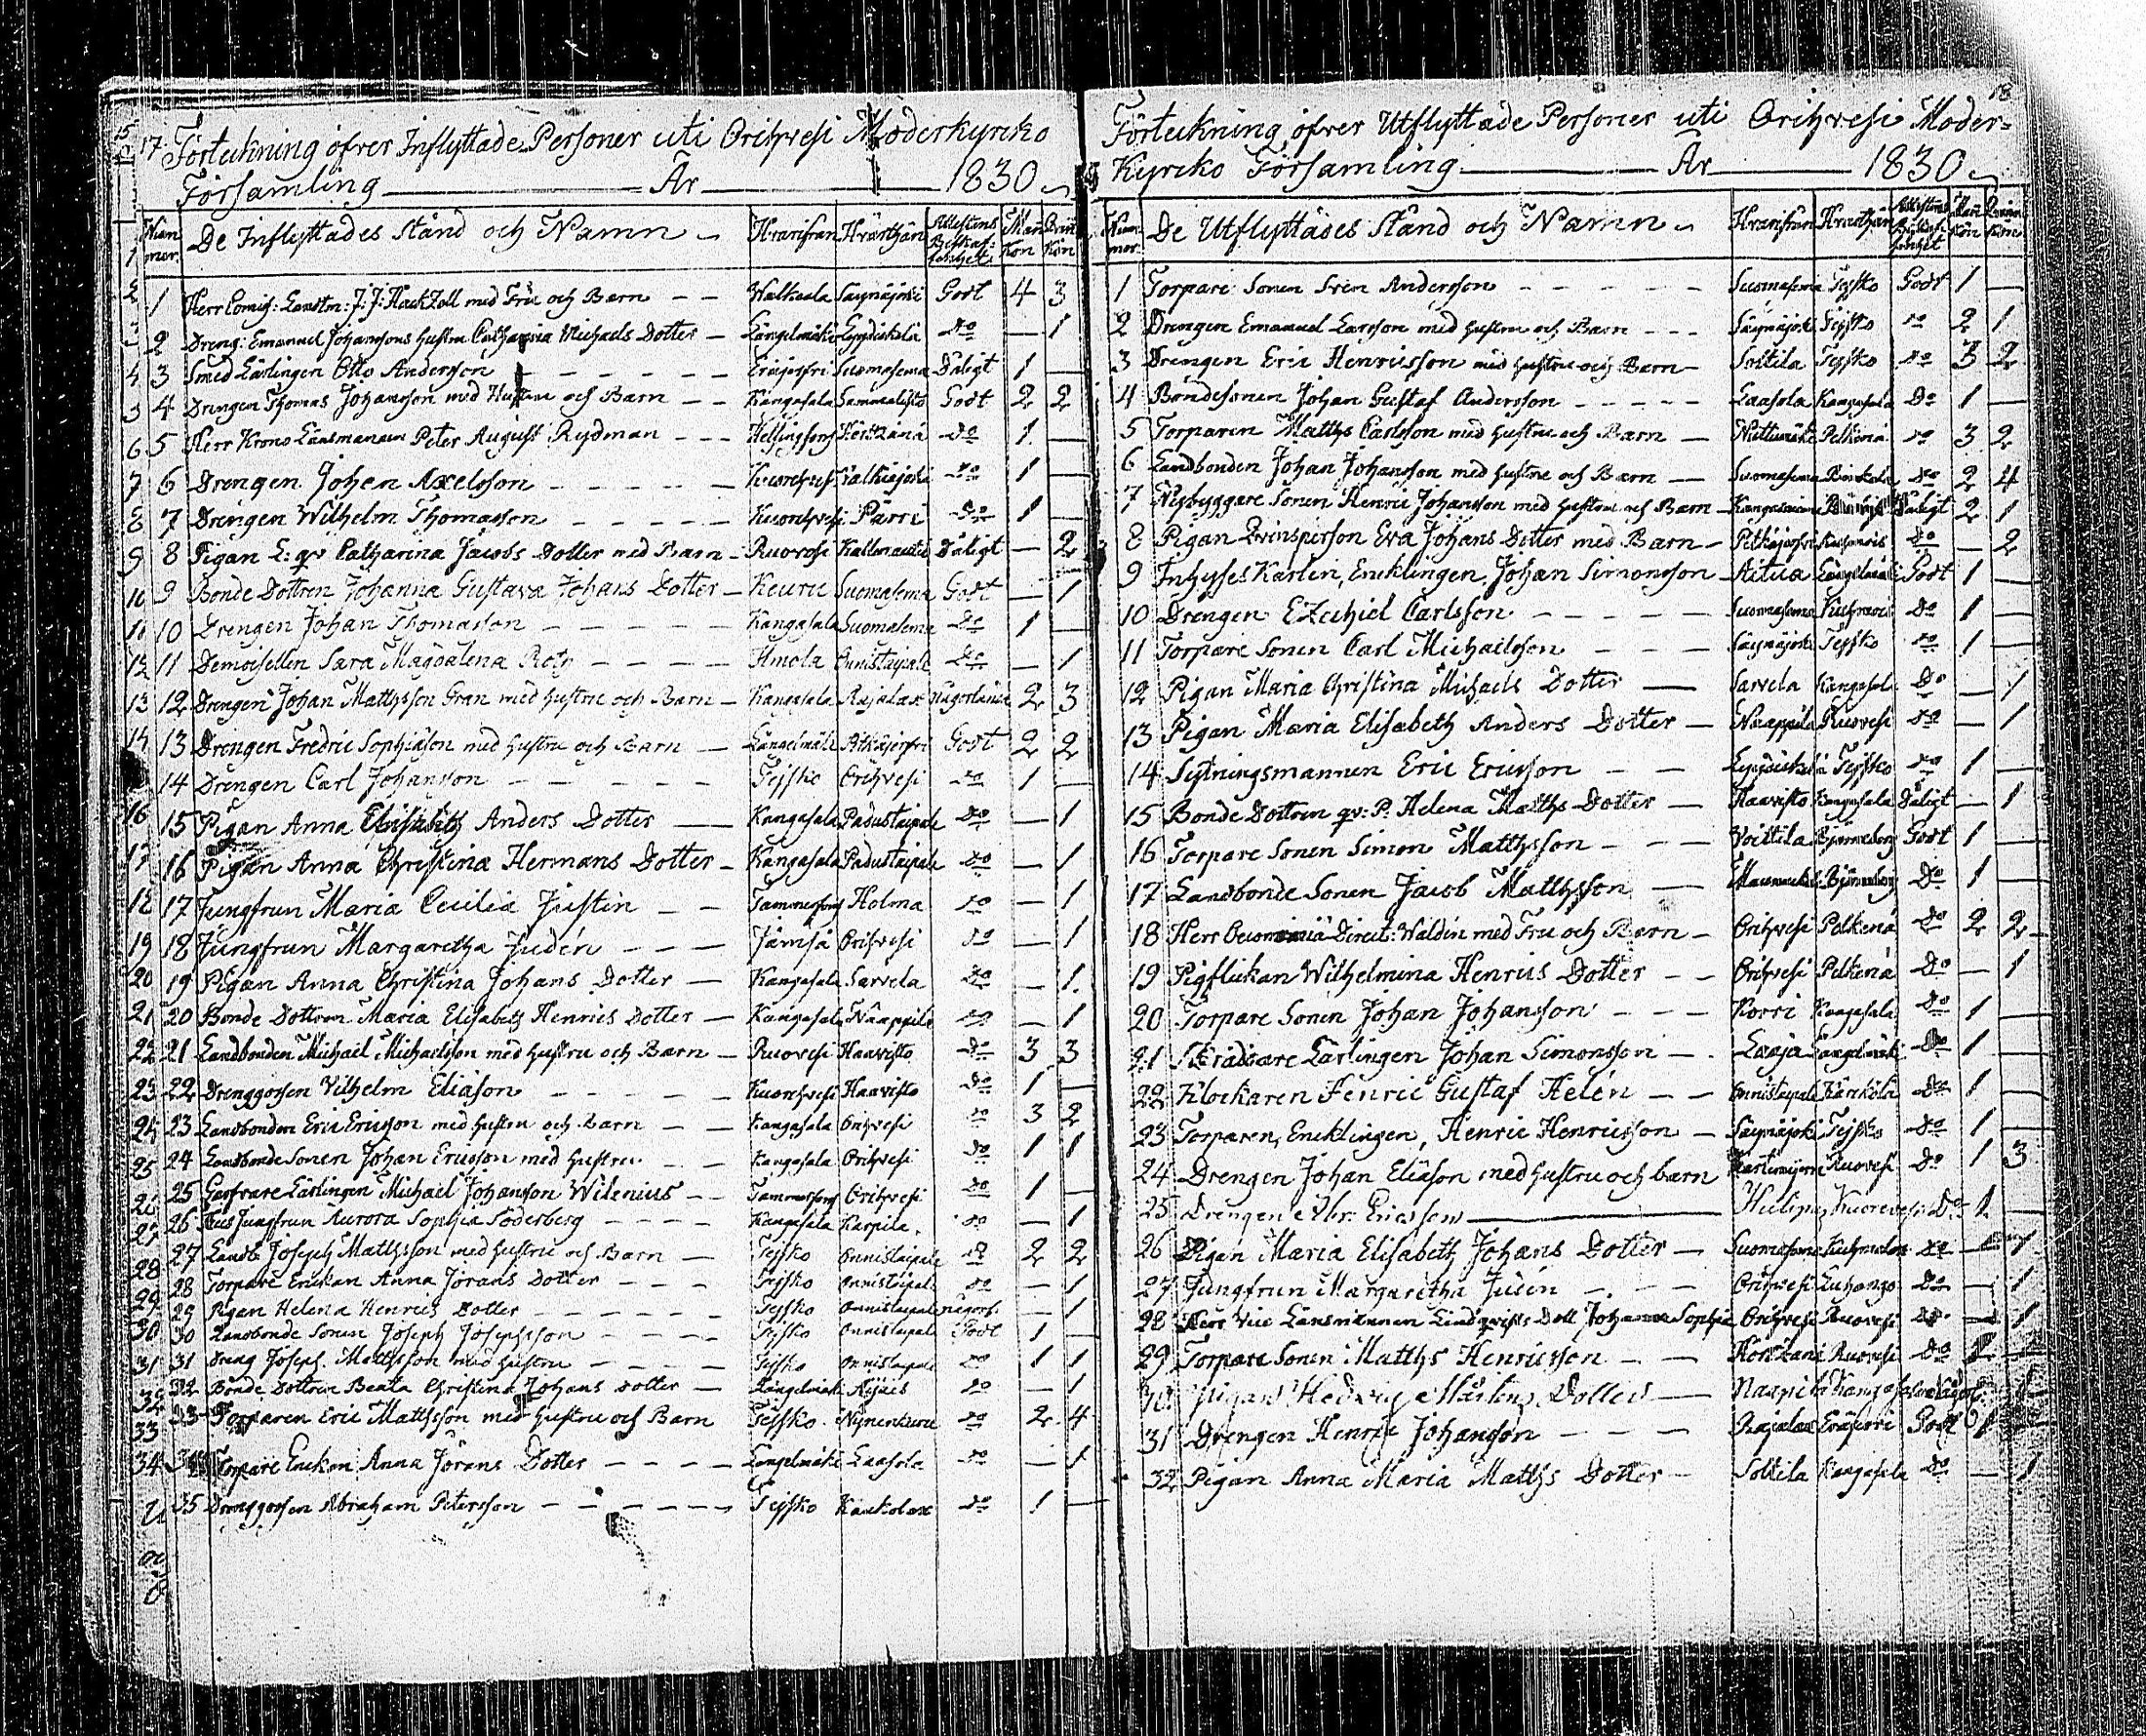 17. Förteckning öfver Inflyttade Personer uti Orihvesi Moderkyrcko
Församling — År — 1830
Num mer. De Inflyttades Stånd och Namn Hvarifrån Hvarthän Attestens Beskaf= fenhet Man Kön Qvin Kön
1 Herr Comiss: Landtm: J: J: Hackzell med Fru och Barn — Walkeala Säynäjoki Godt 4 3
2 Dreng: Emanuel Johanssons hustru Catharina Michaels Dotter — Längelmäki Lyydickälä Do — 1
3 Smed Lärlingen Otto Andersson — Eräjerfvi Suomasema Dåligt 1 —
4 Drengen Thomas Johansson med Hustru och Barn — Kangasala Sammalisto Godt 2 2
5 Herr Krono Länsmannen Peter August Rydman — Helsingfors Do 1 —
6 Drengen Johan Axelsson — Kuorehvesi Do 1 —
7 Drengen Wilhelm Thomasson — Kuorehvesi Pärri Do 1 —
8 Pigan L: qv Catharina Jacobs Dotter med Barn — Ruovesi Kallenautio Dåligt — 2
9 Bonde Dottren Johanna Gustava Johans Dotter — Keuru Suomasema Godt — 1
10 Drengen Johan Thomasson — Kangasala Suomasema Do 1 —
11 Demoisellen Sara Magdalena Roth — Imola Onnistaipale Do — 1
12 Drengen Johan Mattsson Gran med hustru och Barn — Kangasala Rajalax 2 3
13 Drengen Fredric Sophiason med hustru och Barn — Längelmäki Pitkäjerfvi Godt 2 2
14 Drengen Carl Johansson — Tejsko Orihvesi Do 1 —
15 Pigan Anna Elisabeth Anders Dotter — Kangasala Padustaipale Do — 1
16 Pigan Anna Christina Hermans Dotter — Kangasala Padustaipale Do — 1
17 Jungfrun Maria Cecilia Justin — Tammerfors Holma Do — 1
18 Jungfrun Margaretha Judén — Jämsä Orihvesi Do — 1
19 Pigan Anna Christina Johans Dotter — Kangasala Sarvela Do — 1
20 Bonde Dottren Maria Elisabeth Henrics Dotter — Kangasala Naappila Do — 1
21 Landbonden Michael Michaelsson med hustru och Barn — Ruovesi Haavisto Do 3 3
22 Drenggossen Vilhelm Eliäson — Kuorehvesi Haavisto Do 1 —
23 Landbonden Eric Ericsson med hustru och Barn — Kangasala Orihvesi Do 3 2
24 Landbonde Sonen Johan Ericsson med hustru — Kangasala Orihvesi Do 1 1
25 Garfvare Lärlingen Michael Johansson Wilenius — Tammerfors Orihvesi Do 1 —
26 Hus Jungfrun Aurora Sophia Söderberg — Kangasala Karpila Do — 1
27 Landb: Joseph Mattsson med hustru och Barn — Tejsko Onnistaipale Do 2 2
28 Torpare Enckan Anna Jörans Dotter — Tejsko Onnistaipale Do — 1
29 Pigan Helena Henrics Dotter — Tejsko Onnistaipale någorl. — 1
30 Landbonde Sonen Joseph Josephsson — Tejsko Onnistaipale Godt 1 —
31 Dreng Joseph Mattsson med hustru — Tejsko Onnistaipale Do 1 1
32 Bonde Dottren Beata Christina Johans Dotter — Längelmäki Do — 1
33 Torparen Eric Mattsson med hustru och Barn Tejsko Do 2 4
34 Torpare Enckan Anna Jörans Dotter — Längelmäki Laasola Do — 1
35 Drenggossen Abraham Petersson — Tejsko Kaukolax Do 1 —
18
Förteckning öfver Utflyttade Personer uti Orihvesi Moder=
Kyrcko Församling — År — 1830
Num mer. De Utflyttades Stånd och Namn Hvarifrån Hvarthän Attestens Beskaf= fenhet Man Kön Qvin Kön
1 Torpare Sonen Sven Andersson — Suomasema Tejsko Godt 1 —
2 Drengen Emanuel Larsson med hustru och Barn — Säynäjoki Tejsko Do 2 1
3 Drengen Eric Henricsson med hustru och Barn — Soltila Tejsko Do 3 2
4 Bondesonen Johan Gustaf Andersson — Laasola Kangasala Do 1 —
5 Torparen Matths Carlsson med hustru och Barn — Pelkenä Do 3 2
6 Landbonden Johan Johansson med hustru och Barn — Suomasema Birckala Do 2 4
7 Nybyggare Sonen Henric Johansson med hustru och Barn — Dåligt 2 1
8 Pigan Qvinsperson Eva Johans Dotter med Barn — Pitkäjerfvi Do — 2
9 Inhyses Karlen, Encklingen, Johan Simonsson — Aitua Längelmäki Godt 1 —
10 Drengen Ezechiel Carlsson — Suomasema Do 1 —
11 Torpare Sonen Carl Michaelsson — Säynäjoki Tejsko Do 1 —
12 Pigan Maria Christina Michaels Dotter — Sarvela Kangasala Do — 1
13 Pigan Maria Elisabeth Anders Dotter — Naappila Ruovesi Do — 1
14 Sytningsmannen Eric Ericsson — Lyydickälä Tejsko Do 1 —
15 Bonde Dottren qv: P: Helena Matths Dotter — Haavisto Kangasala Dåligt — 1
16 Torpare Sonen Simon Matthsson — Voittila Björneborg Godt 1 —
17 Landbonde Sonen Jacob Matthsson — Björneborg Do 1 —
18 Herr Oeconomiä Direct: Waldin med Fru och Barn — Orihvesi Pelkenä Do 2 2
19 Pigflickan Wilhelmina Henrics Dotter — Orihvesi Pelkenä Do — 1
20 Torpare Sonen Johan Johansson — Korri Kangasala Do 1 —
21 Skräddare Lärlingen Johan Simonsson — Laaja Längelmäki Do 1 —
22 Klockaren Henric Gustaf Helén — Onnistaipale Kärckölä Do 1 —
23 Torparen, Encklingen, Henric Henricsson — Säynäjoki Tejsko Do 1 —
24 Drengen Johan Eliäson med hustru och barn Ruovesi Do 1 3
25 Drengen Abr. Ericsson — Kuorevesi Do 1 —
26 Pigan Maria Elisabeth Johans Dotter — Suomasema Kuhmalax Do — 1
27 Jungfrun Margaretha Judén — Orihvesi Luhango Do — 1
28 Herr Vice Länsmannen Lindqvists Dott Johanna Sophia Orihvesi Ruovesi Do — 1
29 Torpare Sonen Matths Henricsson — Ruovesi Do 1 —
30 Pigan Hedvig Mårtens Dotter — Naapila Kangasala
31 Drengen Henric Johansson — Rajalax Eräjervi Godt 1
32 Pigan Anna Maria Matths Dotter — Soltila Kangasala Do — 1